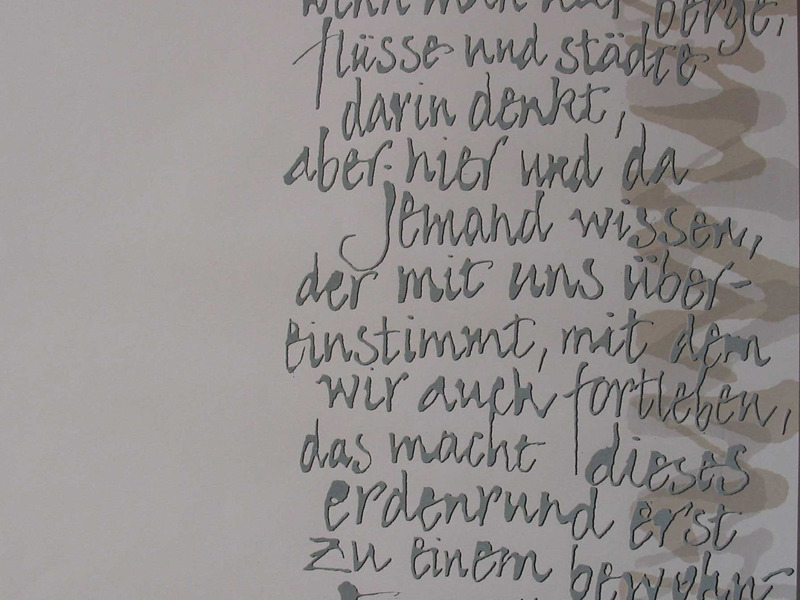 wenn man nur berge,
flüsse und städte
darin denkt,
aber hier und da
jemand wissen,
der mit uns über-
einstimmt, mit dem
wir auch fortleben,
das macht dieses
erdenrund erst
zu einem bewohn-